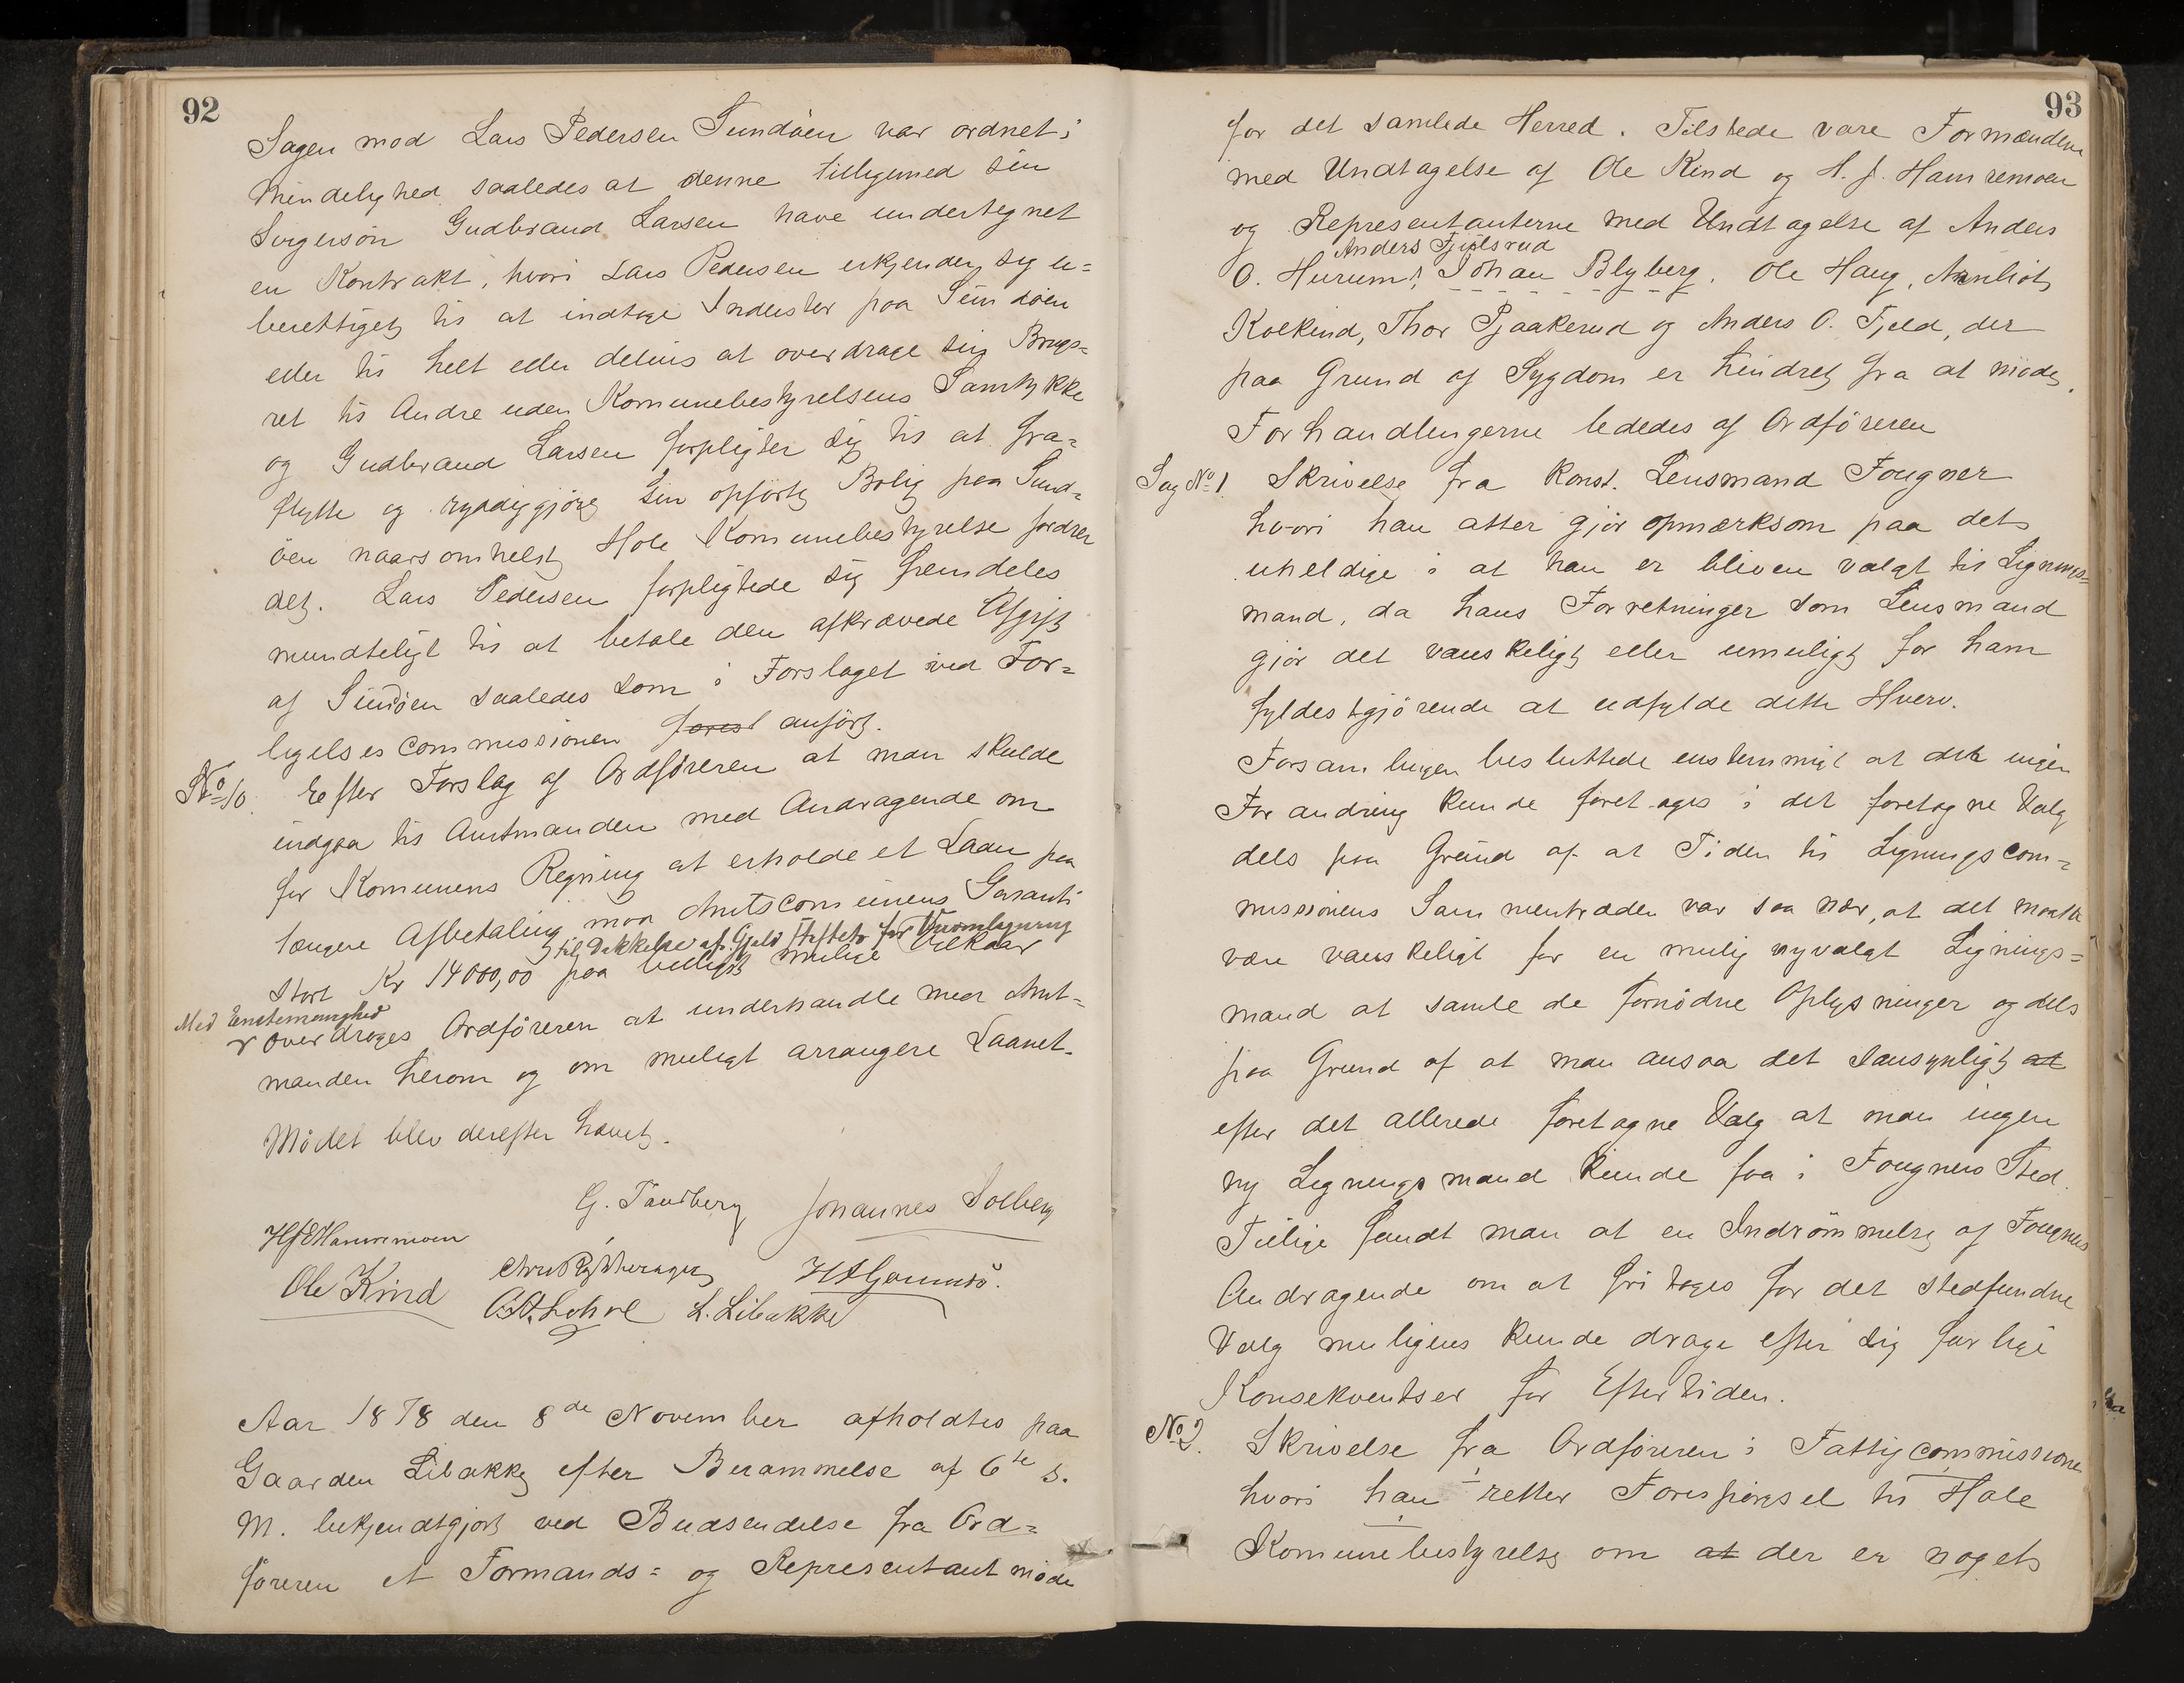 92
Sagen mod Lars Pedersen Sundöen var ordnet i
Mindelighed saaledes at denne tilligemed sin
Svigersön Gudbrand Larsen have undertegnet
en Kontrakt, hvori Lars Pedersen erkjender sig u=
berettiget til at indtage Inderster paa Sundöen
eller til helt eller delvis at overdrage sin Brugs=
ret til Andre uden Komunebestyrelsens Samtykke
og Gudbrand Larsen forpligter sig til at fra=
flytte og ryddiggjöre sin opförte Bolig paa Sund=
öen naarsomhelst Hole Komunebestyrelse fordrer
det. Lars Pedersen forpligtede sig fremdeles
mundteligt til at betale den afkrævede Afgift
af Sundöen saaledes som i Forslaget ved For=
ligelsescommissionen forest anført.
No 10. Efter Forslag af Ordföreren at man skulde
indgaa til Amtmanden med Andragende om
for Komunens Regning at erholde et Laan paa
længere Afbetaling mod Amtscomunens Garanti
til Dækkelse af Gjeld stiftet for Veiomlægning
stort Kr 14000,00 paa billigst mulige Vilkaar
Med Enstemmighed
overdroges Ordföreren at underhandle med Amt=
manden herom og om muligt arrangere Laanet.
Mödet blev derefter hævet.
G. Tandberg Johannes Solberg
Ole Kind L. Libakke
Aar 1878 den 8de November afholdtes paa
Gaarden Libakke efter Berammelse af 6te d.
M. bekjendtgjort ved Budsendelse fra Ord=
föreren et Formands= og Representantmöde
93
for det samlede Herred. Tilstede vare Formændene
med Undtagelse af Ole Kind og H. J. Hamremoen
og Representanterne med Undtagelse af Anders
Anders Fjölsrud
O. Hurum, Johan Blyberg, Ole Haug, Arnliot
Kolkind, Thor Pjaakerud og Anders O. Fjeld, der
paa Grund af Sygdom er hindret fra at möde.
Forhandlingerne lededes af Ordföreren
Sag No 1 Skrivelse fra Konst. Lensmand Fougner
hvori han atter gjör opmærksom paa det
uheldige i at han er bleven valgt til Lignings=
mand, da hans Forretninger som Lensmand
gjör det vanskeligt eller umuligt for ham
fyldestgjörende at udfylde dette Hverv.
Forsamlingen besluttede enstemmigt at der ingen
Forandring kunde foretages i det foretagne Valg
dels paa Grund af at Tiden til Ligningscom=
missionens Sammentræden var saa nær, at det maatte
være vanskeligt for en mulig nyvalgt Lignings=
mand at samle de fornödne Oplysninger og dels
paa Grund af at man ansaa det sansynligt at
efter det allerede foretagne Valg at man ingen
ny Ligningsmand kunde faa i Fougners Sted.
Tillige fandt man at en Indrömmelse af Fougners
Andragende om at fritages for det stedfundne
Valg muligens kunde drage efter sig farlige
Konsekventser for Eftertiden.
No 2. Skrivelse fra Ordföreren i Fattigcommissionen
hvori han retter Forespörgsel til Hole
Komunebestyrelse om at der er noget